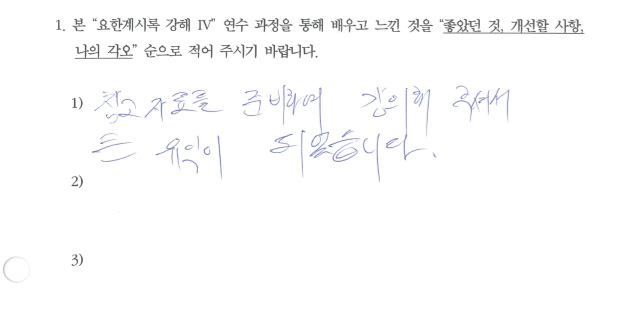 1. 본 “요한계시록 강해 IV” 연수 과정을 통해 배우고 느낀 것을 “좋았던 것, 개선할 사항,
나의 각오” 순으로 적어 주시기 바랍니다.
1) 참고 자료를 준비하여 강의해 주셔서
큰 유익이 되었습니다.
2)
3)